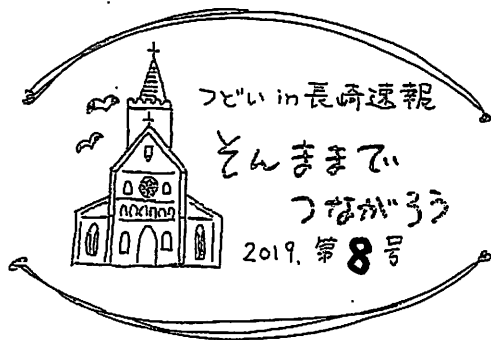 つどいin長崎速報
そんままでぃ
つながろう
2019. 第8号